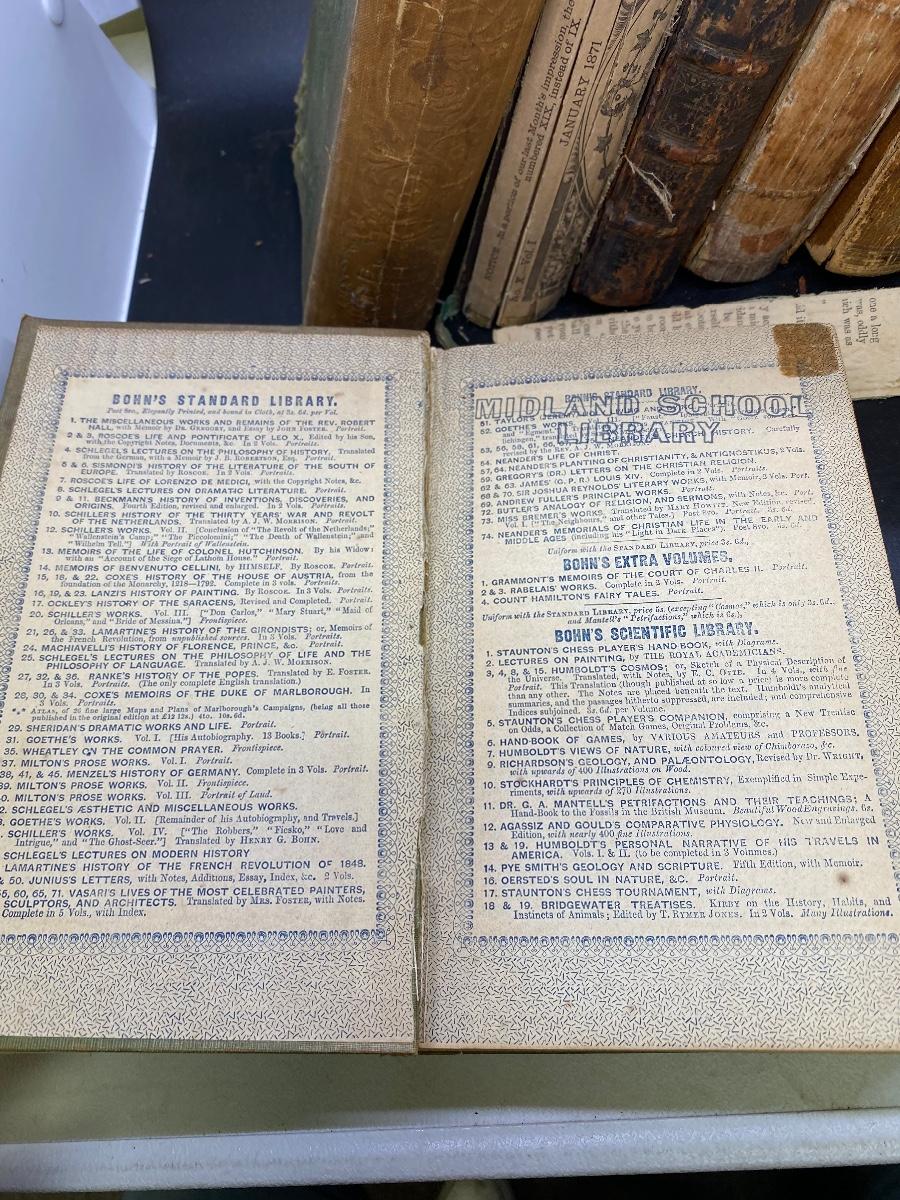 BOHN'S STANDARD LIBRARY.
Post 8vo., Elegantly Printed, and bound in Cloth, at 3s. 6d. per Vol.
1. THE MISCELLANEOUS WORKS AND REMAINS OF THE REV. ROBERT
HALL, with Memoir by DR. GREGORY, and Essay by JOHN FOSTER. Portrait.
2 & 3. ROSCOE'S LIFE AND PONTIFICATE OF LEO X., Edited by his Son,
with the Copyright Notes, Documents, &c. In 2 Vols. Portraits.
4. SCHLEGEL'S LECTURES ON THE PHILOSOPHY OF HISTORY, Translated
from the German, with a Memoir by J. B. ROBERTSON, Esq. Portrait.
5 & 6. SISMONDI'S HISTORY OF THE LITERATURE OF THE SOUTH OF
EUROPE. Translated by ROSCOE. In 2 Vols. Portraits.
7. ROSCOE'S LIFE OF LORENZO DE MEDICI, with the Copyright Notes, &c.
8. SCHLEGEL'S LECTURES ON DRAMATIC LITERATURE. Portrait.
9 & 11. BECKMANN'S HISTORY OF INVENTIONS, DISCOVERIES, AND
ORIGINS. Fourth Edition, revised and enlarged. In 2 Vols. Portraits.
10. SCHILLER'S HISTORY OF THE THIRTY YEARS' WAR AND REVOLT
OF THE NETHERLANDS. Translated by A. J. W. MORRISON. Portrait.
12. SCHILLER'S WORKS. Vol. II. [Conclusion of "The Revolt of the Netherlands;"
"Wallenstein's Camp;" "The Piccolomini;" "The Death of Wallenstein;" and
"Wilhelm Tell."] With Portrait of Wallenstein.
13. MEMOIRS OF THE LIFE OF COLONEL HUTCHINSON. By his Widow:
with an "Account of the Siege of Lathom House." Portrait.
14. MEMOIRS OF BENVENUTO CELLINI, by HIMSELF, By ROSCOE. Portrait.
15, 18, & 22. COXE'S HISTORY OF THE HOUSE OF AUSTRIA, from the
foundation of the Monarchy, 1218—1792. Complete in 3 vols. Portraits.
16, 19, & 23. LANZI'S HISTORY OF PAINTING. By ROSCOE. In 3 Vols. Portraits.
17. OCKLEY'S HISTORY OF THE SARACENS, Revised and Completed. Portrait.
20. SCHILLER'S WORKS. Vol. III. ["Don Carlos," "Mary Stuart," "Maid of
Orleans," and "Bride of Messina."] Frontispiece.
21, 26, & 33. LAMARTINE'S HISTORY OF THE GIRONDISTS; or, Memoirs of
the French Revolution, from unpublished sources. In 3 Vols. Portraits.
24. MACHIAVELLI'S HISTORY OF FLORENCE, PRINCE, &c. Portrait.
25. SCHLEGEL'S LECTURES ON THE PHILOSOPHY OF LIFE AND THE
PHILOSOPHY OF LANGUAGE. Translated by A. J. W. MORRISON.
27, 32, & 36. RANKE'S HISTORY OF THE POPES. Translated by E. FOSTER.
In 3 Vols. Portraits. (The only complete English translation.)
28, 30, & 34. COXE'S MEMOIRS OF THE DUKE OF MARLBOROUGH. In
3 Vols. Portraits.
*** ATLAS, of 26 fine large Maps and Plans of Marlborough's Campaigns, (being all those
published in the original edition at £12 12s.) 4to. 10s. 6d.
29. SHERIDAN'S DRAMATIC WORKS AND LIFE. Portrait.
31. GOETHE'S WORKS. Vol. I. [His Autobiography. 13 Books.] Portrait.
35. WHEATLEY ON THE COMMON PRAYER. Frontispiece.
37. MILTON'S PROSE WORKS. Vol. I. Portrait.
38, 41, & 45. MENZEL'S HISTORY OF GERMANY. Complete in 3 Vols. Portrait.
39. MILTON'S PROSE WORKS. Vol. II. Frontispiece.
0. MILTON'S PROSE WORKS. Vol. III. Portrait of Laud.
2. SCHLEGEL'S ÆSTHETIC AND MISCELLANEOUS WORKS.
GOETHE'S WORKS. Vol. II. [Remainder of his Autobiography, and Travels.]
SCHILLER'S WORKS. Vol. IV. ["The Robbers," "Fiesko," "Love and
Intrigue," and "The Ghost-Seer."] Translated by HENRY G. BOHN.
SCHLEGEL'S LECTURES ON MODERN HISTORY
LAMARTINE'S HISTORY OF THE FRENCH REVOLUTION OF 1848.
& 50. JUNIUS'S LETTERS, with Notes, Additions, Essay, Index, &c. 2 Vols.
60, 65, 71. VASARI'S LIVES OF THE MOST CELEBRATED PAINTERS,
SCULPTORS, AND ARCHITECTS. Translated by MRS. FOSTER, with Notes.
Complete in 5 Vols., with Index.
BOHN'S STANDARD LIBRARY.
MIDLAND SCHOOL
LIBRARY
51. TAYLOR'S
52. GOETHE'S WORKS
HISTORY. Carefully
revised by the Rev.
54. NEANDER'S LIFE OF CHRIST.
NEANDER'S PLANTING OF CHRISTIANITY, & ANTIGNOSTIKUS, 2 Vols.
59. GREGORY'S (DR.) LETTERS ON THE CHRISTIAN RELIGION.
62 & 63. JAMES' (G. P. R.) LOUIS XIV. Complete in 2 Vols. Portraits.
& 70. SIR JOSHUA REYNOLDS' LITERARY WORKS, with Memoir, 2 Vols. Port.
69. ANDREW FULLER'S PRINCIPAL WORKS. Portrait.
72. BUTLER'S ANALOGY OF RELIGION, AND SERMONS, with Notes, &c. Port.
73. MISS BREMER'S WORKS. Translated by MARY HOWITT. New Edition, revised.
Vol. I. ["The Neighbours," and other Tales.] Post 8vo. Portrait. 3s. 6d.
74. NEANDER'S MEMORIALS OF CHRISTIAN LIFE IN THE EARLY AND
MIDDLE AGES (including his "Light in Dark Places"). Post 8vo. 3s. 6d.
Uniform with the STANDARD LIBRARY, price 3s. 6d.,
BOHN'S EXTRA VOLUMES.
1. GRAMMONT'S MEMOIRS OF THE COURT OF CHARLES II. Portrait.
2 & 3. RABELAIS' WORKS. Complete in 2 Vols. Portrait.
4. COUNT HAMILTON'S FAIRY TALES. Portrait.
Uniform with the STANDARD LIBRARY, price 5s. (excepting "Cosmos," which is only 3s. 6d.,
and Mantell's "Petrifactions," which is 6s.),
BOHN'S SCIENTIFIC LIBRARY.
1. STAUNTON'S CHESS PLAYER'S HAND BOOK, with Diagrams.
2. LECTURES ON PAINTING, by THE ROYAL ACADEMICIANS.
3, 4, 8, & 15. HUMBOLDT'S COSMOS; or, Sketch of a Physical Description of
the Universe. Translated, with Notes, by E. C. OTTÉ. In 4 Vols., with fine
Portrait. This Translation (though published at so low a price) is more complete
than any other. The Notes are placed beneath the text. Humboldt's analytical
summaries, and the passages hitherto suppressed, are included; and comprehensive
Indices subjoined. 3s. 6d. per Volume.
5. STAUNTON'S CHESS PLAYER'S COMPANION, comprising a New Treatise
on Odds, a Collection of Match Games, Original Problems, &c.
6. HAND-BOOK OF GAMES, by VARIOUS AMATEURS and PROFESSORS.
7. HUMBOLDT'S VIEWS OF NATURE, with coloured view of Chimborazo, &c.
9. RICHARDSON'S GEOLOGY, AND PALÆONTOLOGY, Revised by DR. WRIGHT,
with upwards of 400 Illustrations on Wood.
10. STOCKHARDT'S PRINCIPLES OF CHEMISTRY, Exemplified in Simple Expe-
riments, with upwards of 270 Illustrations.
11. DR. G. A. MANTELL'S PETRIFACTIONS AND THEIR TEACHINGS; A
Hand-Book to the Fossils in the British Museum. Beautiful Wood Engravings. 6s.
12. AGASSIZ AND GOULD'S COMPARATIVE PHYSIOLOGY. New and Enlarged
Edition, with nearly 400 fine Illustrations.
13 & 19. HUMBOLDT'S PERSONAL NARRATIVE OF HIS TRAVELS IN
AMERICA. Vols. I. & II. (to be completed in 3 Volumes.)
14. PYE SMITH'S GEOLOGY AND SCRIPTURE. Fifth Edition, with Memoir.
16. OERSTED'S SOUL IN NATURE, &c. Portrait.
17. STAUNTON'S CHESS TOURNAMENT, with Diagrams.
18 & 19. BRIDGEWATER TREATISES. KIRBY on the History, Habits, and
Instincts of Animals; Edited by T. RYMER JONES. In 2 Vols. Many Illustrations.
a portion of our last Month's impression, the
numbered XIX, instead of IX
JANUARY 1871
Vol I
one a long